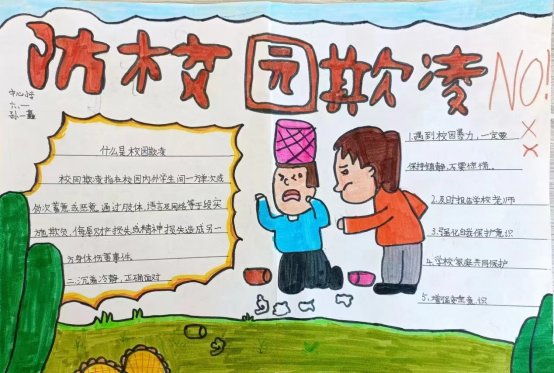 防校园欺凌
NO!
中心小学
六、一
什么是校园欺凌
校园欺凌指在校园内外学生间一方单次或
多次蓄意或恶意通过肢体、语言及网络等手段实
施欺负、侮辱财产损失或精神损失造成另一
方身体伤害事件
二、沉着冷静,正确面对
1.遇到校园暴力,一定要
保持镇静,不要惊慌。
2.及时报告学校老师
3.强化自我保护意识
4.学校家庭共同保护
5.增强安全意识